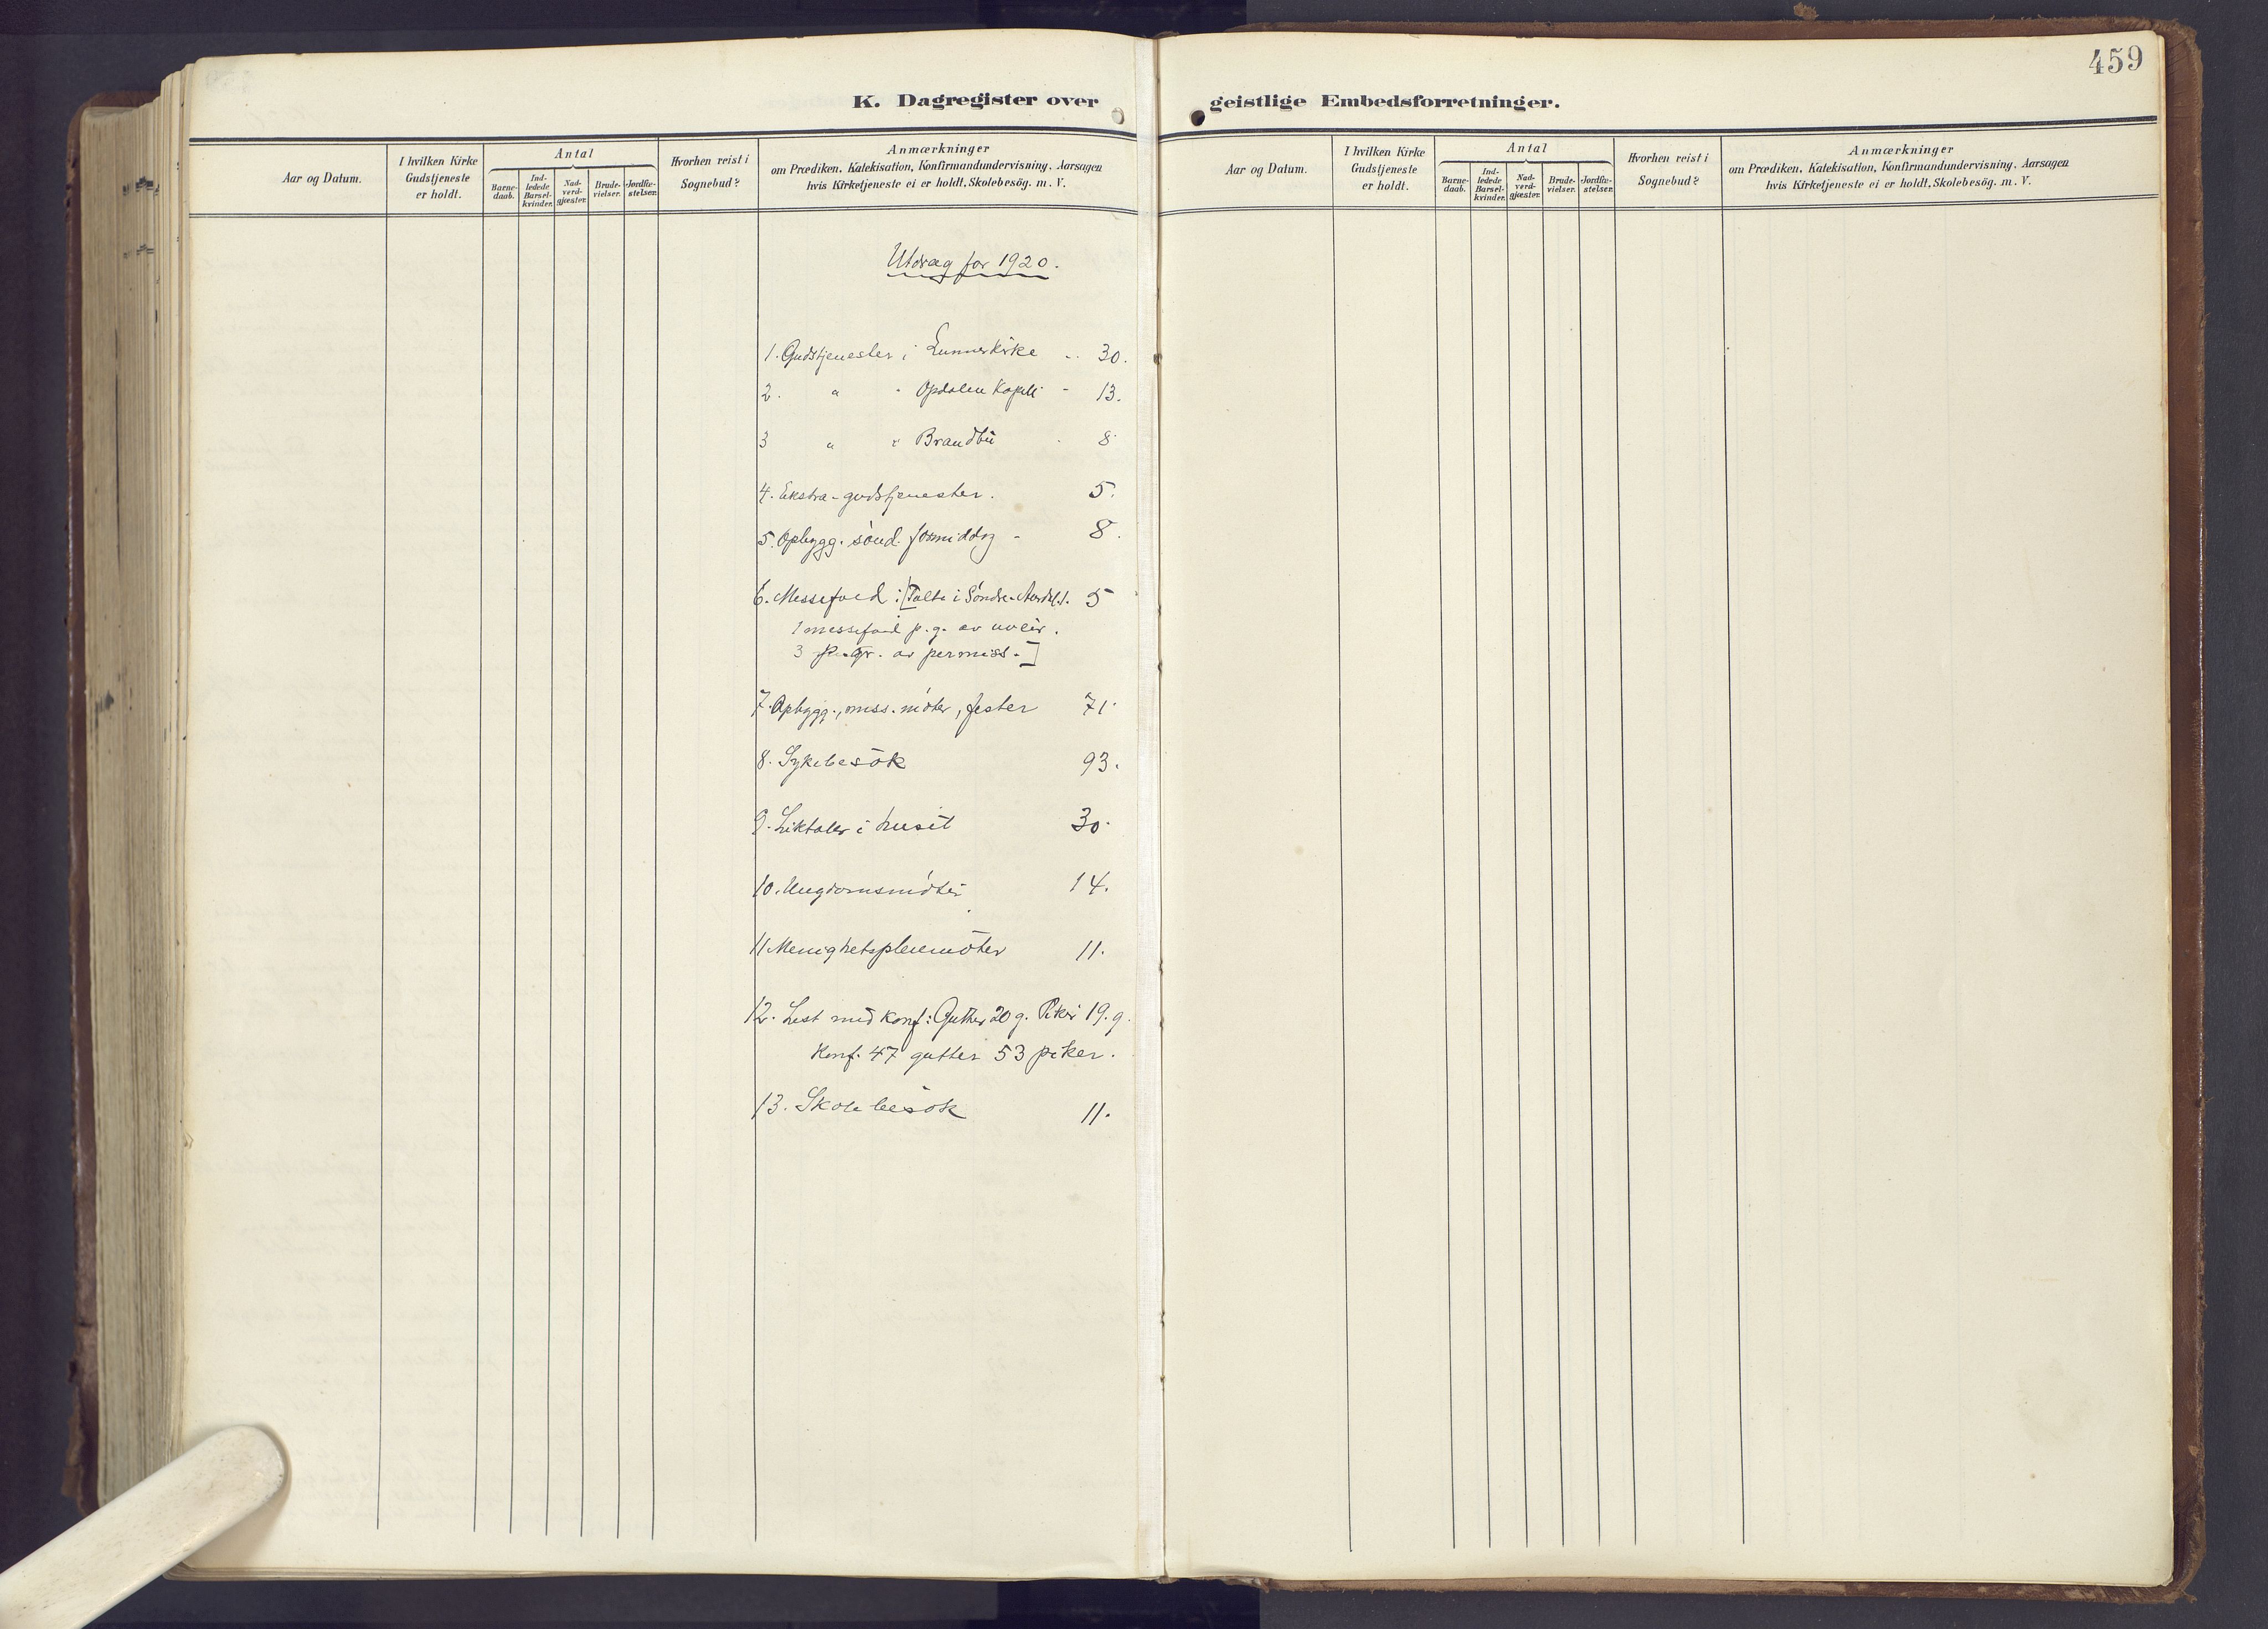 459
K. Dagregister over geistlige Embedsforretninger.
Aar og Datum.
I hvilken Kirke Gudstjeneste er holdt.
Antal
Barne-daab.
Ind-ledede Barsel-kvinder.
Nad-verd-gjæster.
Brude-vielser.
Jordfæ-stelser.
Hvorhen reist i Sognebud?
Anmærkninger
om Prædiken, Katekisation, Konfirmandundervisning, Aarsagen
hvis Kirketjeneste ei er holdt, Skolebesög. m. V.
Utdrag for 1920.
1. Gudstjenester i Lunner kirke .. 30.
2. " " Opdalen Kapel - 13.
3 " " Brandbu . 8
4. Ekstra-gudstjenester. 5.
5. Opbygg. sönd. formiddag - 8.
6. Messefald : [Talte i Söndre 5
1 messefald p. g. av uveir.
3 p. gr. av permiss.]
7. Opbygg., miss. möter, fester 71.
8. Sykebesök 93.
9. Liktaler i huset 30.
10. Ungdomsmöter 14.
11 Menighetspleiemöter 11.
12. Lest med konf: Gutter 20 g. Piker 19. g.
Konf. 47 gutter 53 piker.
13. Skolebesök 11.
Aar og Datum.
I hvilken Kirke Gudstjeneste er holdt.
Antal
Barne-daab.
Ind-ledede Barsel-kvinder.
Nad-verd-gjæster.
Brude-vielser.
Jordfæ-stelser.
Hvorhen reist i Sognebud?
Anmærkninger
om Prædiken, Katekisation, Konfirmandundervisning, Aarsagen
hvis Kirketjeneste ei er holdt, Skolebesög. m. V.